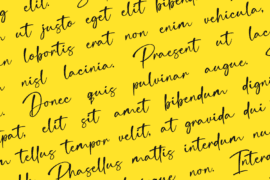 elit.
ut justo eget elit biben
lobortis erat non enim vehicula,
nisl lacinia. Praesent ut lac
Donec quis pulvinar augue.
elit sit amet bibendum digni
tellus tempor velit, at gravida dui
Phasellus mattis interdum nu
non. Inter